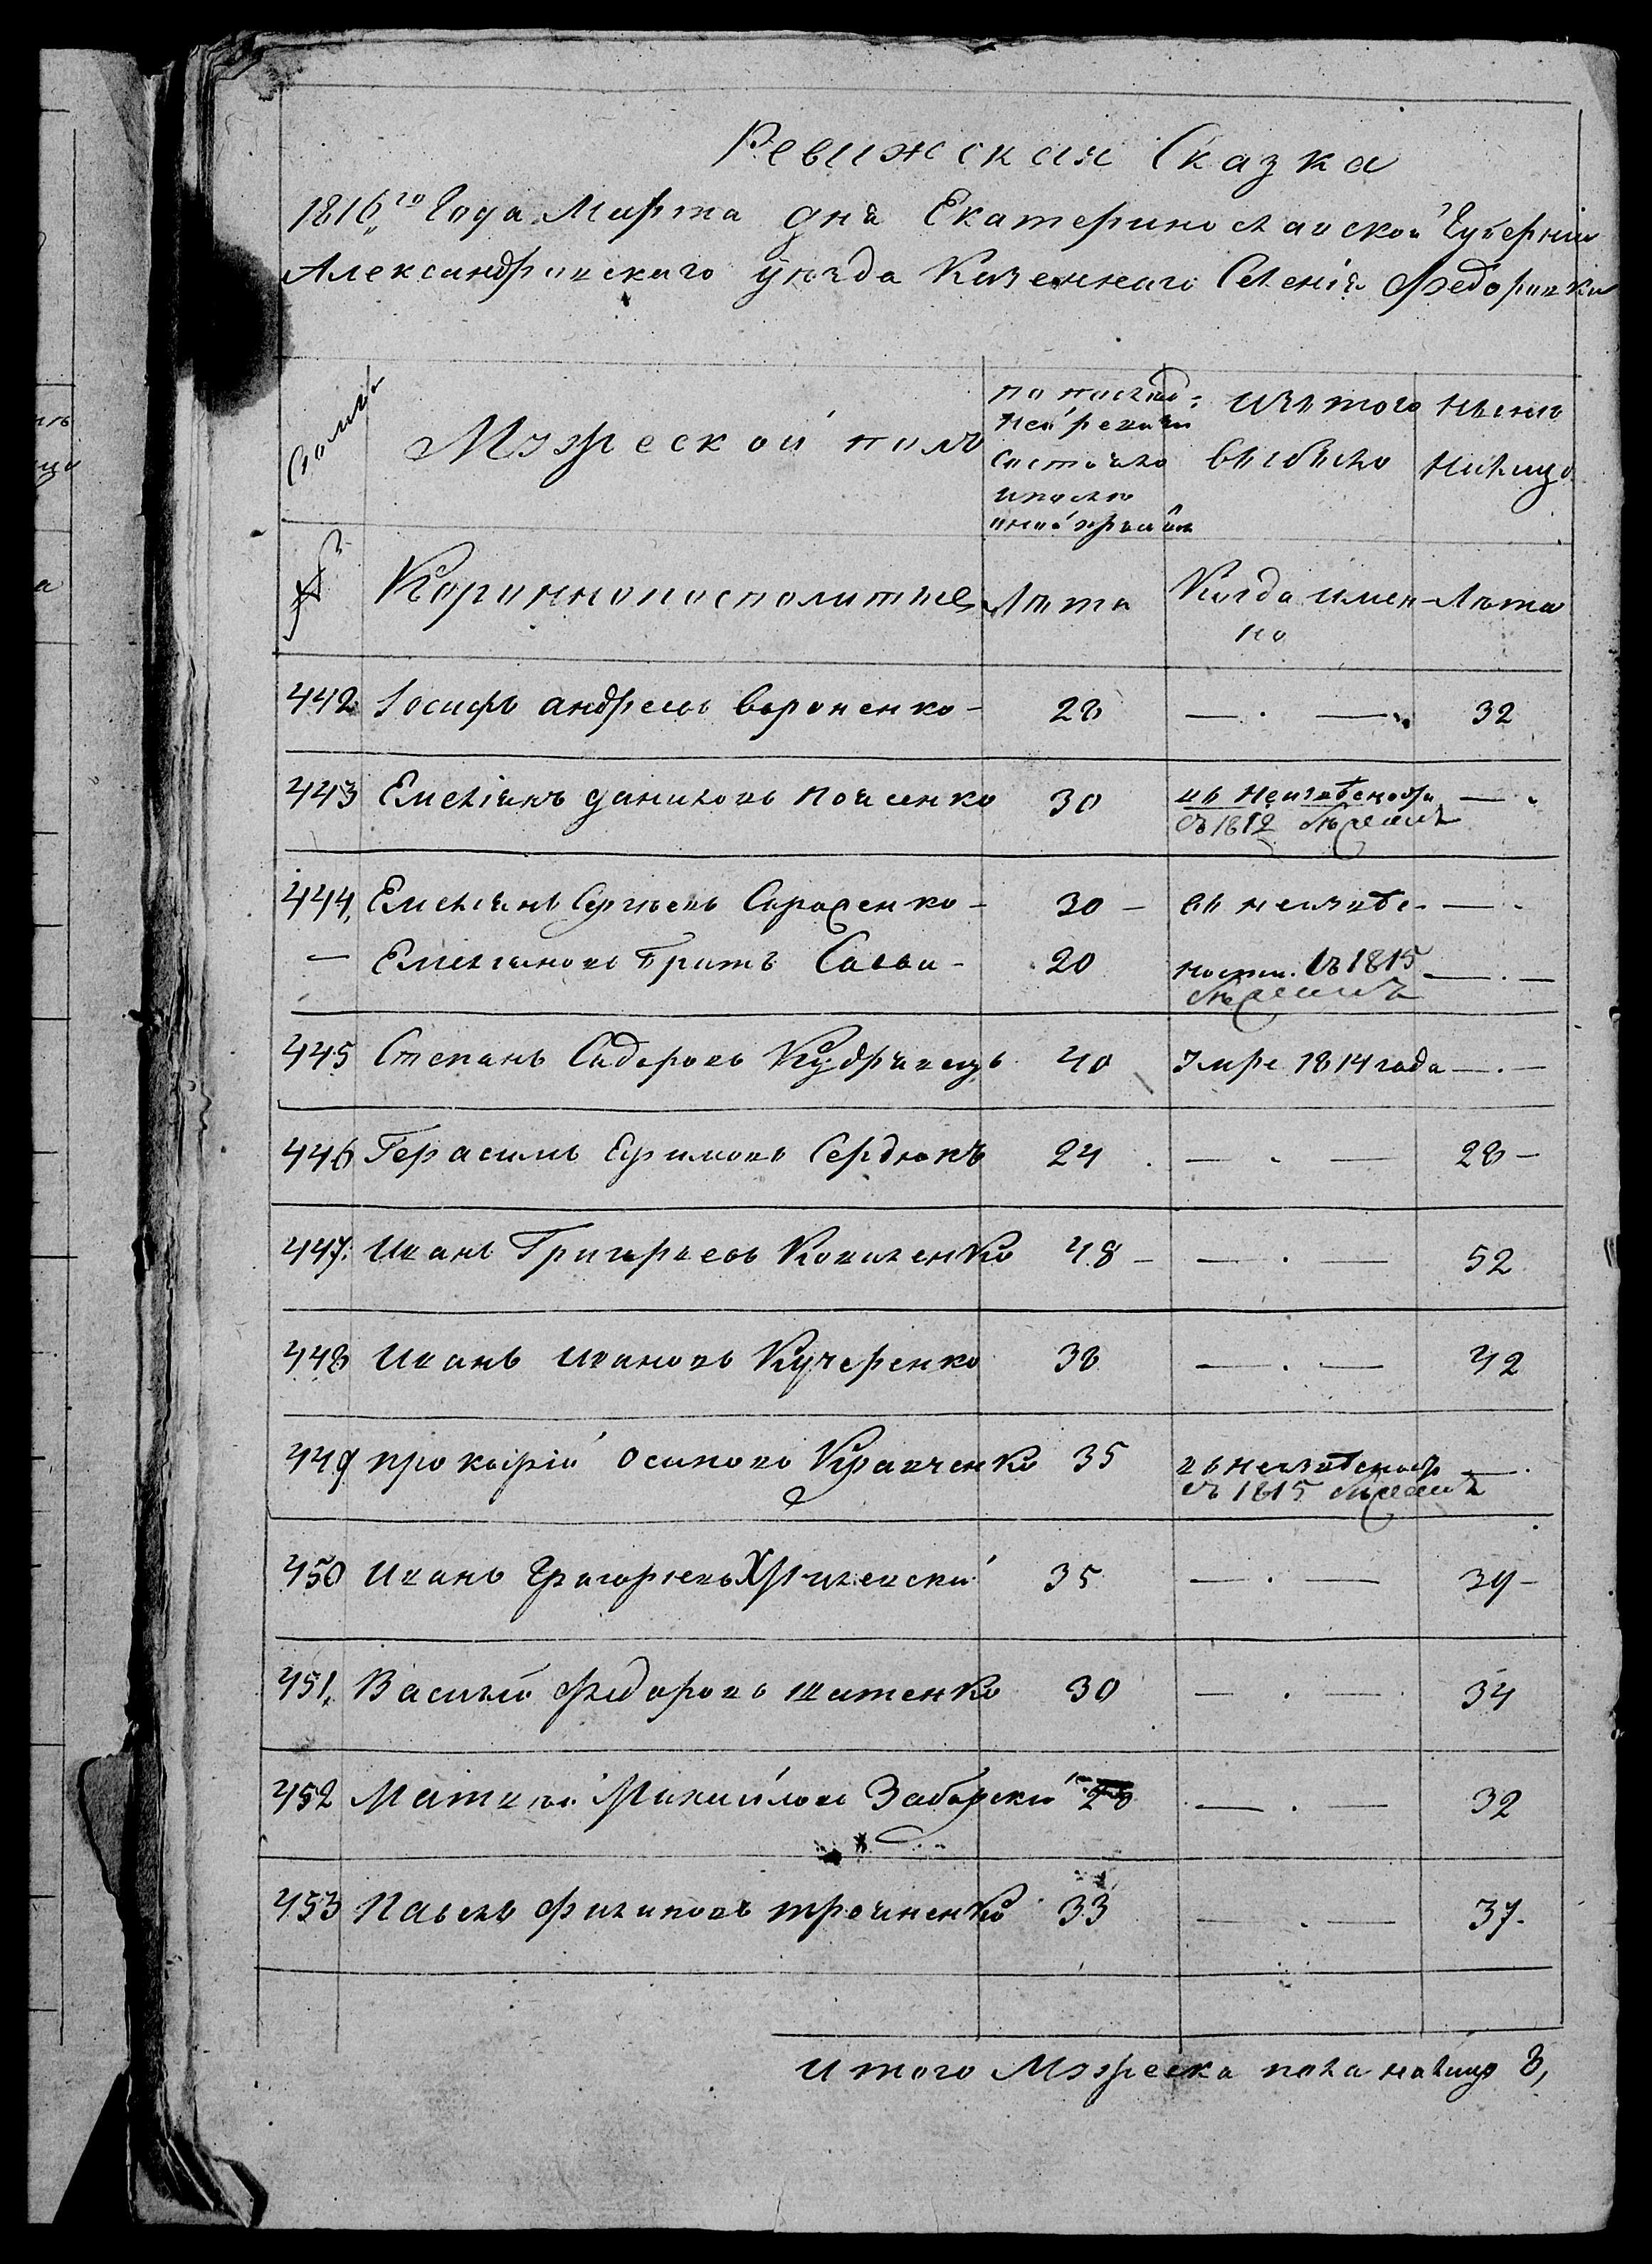 Ревижская Сказка
1816го Года Марта дня Екатеринославской Губерніи
Александровскаго уѣзда Казеннаго Селенія Федоровки
Мужеской полъ
по послѣд:
ней ревизіи
состояло
изъ того
выбыло
нынѣ
налицо
Лѣта
Когда имен
но
Лѣта
442 Іосифъ андреевъ вороненко - 28 — . — 32
443 Емеліянъ даниловъ 30 въ неизвѣсности — .
съ 1812
444, Емеліянъ Сергѣевъ 30 - въ неизвѣс- — .
— Емеліяновъ братъ Савва - 20 ности. съ 1815 — . —
445 Степанъ Сидоровъ Кудрявецъ 40 Умре 1814 года — . —
446 Герасимъ Ефимовъ Сердюкъ 24 — . — 28 -
447. Иванъ Григорьевъ Коваленко 48 - — . — 52
448 Иванъ Ивановъ Кучеренко 38 — . — 42
449 прокофій осиповъ Кравченко 35 въ неизвѣсности — .
съ 1815
450 Иванъ Григорьевъ 35 — . — 39 -
451, Василій федоровъ шатенко 30 — . — 34
452 Матвѣй Михайловъ Заборскій 28 — . — 32
453 Павелъ филиповъ 33 — . — 37.
Итого Мужеска пола налицо 8,